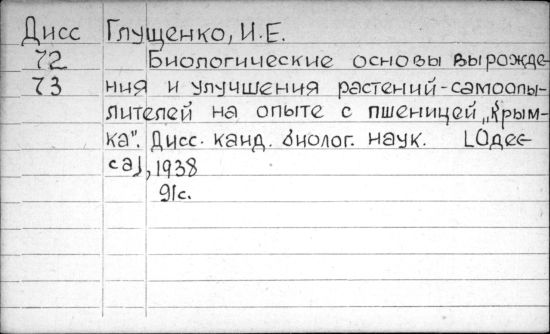 Дисс Глущенко, И.Е.
72 Биологические основы вырожде-
73 ния и улучшения растений-самоопы-
лителей на опыте с пшеницей „Крым-
ка". Дисс. канд. биолог. наук. [Одес-
са], 1938
91с.